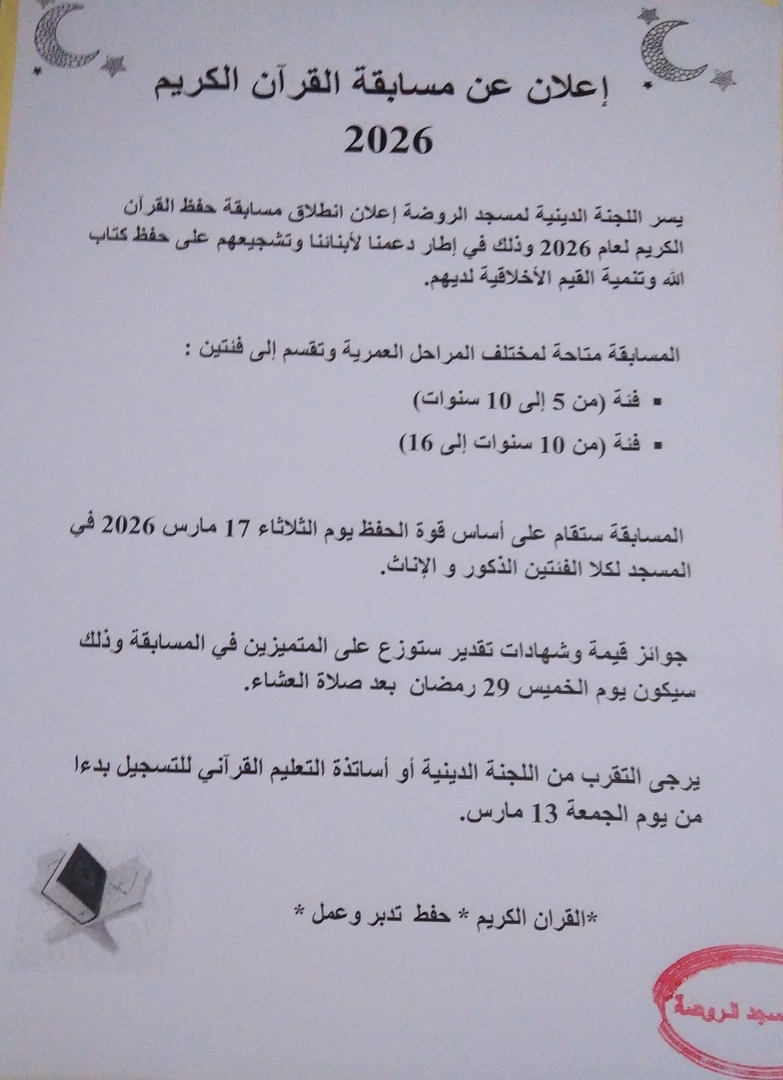 إعلان عن مسابقة القرآن الكريم
2026
يسر اللجنة الدينية لمسجد الروضة إعلان انطلاق مسابقة حفظ القرآن
الكريم لعام 2026 وذلك في إطار دعمنا لأبنائنا وتشجيعهم على حفظ كتاب
الله وتنمية القيم الأخلاقية لديهم.
المسابقة متاحة لمختلف المراحل العمرية وتقسم إلى فئتين :
▪ فئة (من 5 إلى 10 سنوات)
▪ فئة (من 10 سنوات إلى 16)
المسابقة ستقام على أساس قوة الحفظ يوم الثلاثاء 17 مارس 2026 في
المسجد لكلا الفئتين الذكور و الإناث.
جوائز قيمة وشهادات تقدير ستوزع على المتميزين في المسابقة وذلك
سيكون يوم الخميس 29 رمضان بعد صلاة العشاء.
يرجى التقرب من اللجنة الدينية أو أساتذة التعليم القرآني للتسجيل بدءا
من يوم الجمعة 13 مارس.
*القران الكريم * حفط تدبر وعمل *
سجد الروضة